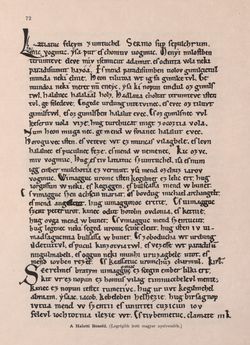 72
Latiatuc feleym zumtuchel Sermo sup sepulchrum.
mic vogmuc. yſa pur eſ chomuv uogmuc. Menyi miloſtben
terumteve eleve miv iſemucut adamut. eſ odutta vola neki
paradiſumut hazoa. Eſ mend paradiſumben uolov gimilcictul
munda neki elnie. Heon tilutoa wt ig fa gimilce tvl. Ge
mundoa neki meret num eneyc. yſa ki nopun emdul oz gimilſ
twl. halalnec halalaal holz. Hadlaua choltat terumteve iſten
tvl. ge feledeve. Engede urdung intetvinec. eſ evec oz tiluvt
gimilſtvl. eſ oz gimilſben halalut evec. Eſ oz gimilſnec vvl
keſeruv uola vize. hug turchucat mige zocoztia vola.
Num heon muga nec. ge mend w foianec halalut evec.
Horoguvec iſten. eſ veteve wt ez muncaſ vilagbele. eſ levn
halalnec eſ poculnec feze. eſ mend w nemenec. Kic ozvc.
miv vogmuc. Hug eſ tiv latiatuv szumtuchel. iſa eſ num
igg ember mulchotia ez vermut. yſa mend ozchuz iarov
vogmuc. Wimagguc uromv iſten kegilmet ez lelic ert. hug
iorgoſſun w neki. eſ kegiggen. eſ bulſaſſa mend w bunet.
Eſ vimagguc szen achscin mariat. eſ bovdug michael archangelt.
eſ mend angelcut. hug uimaggonoc erette. Eſ uimagguc
szent peter urot. kinec odut hotolm ovdonia. eſ ketnie.
hug ovga mend w bunet. Eſ vimagguc mend szentucut.
hug legenec neki seged uromc scine eleut. hug iſten iv
uimadſagucmia bulſaſſa w bunet. Eſ zoboducha wt urdung
ildetuitvl. eſ pucul kinzotviatwl. eſ vezeſſe wt paradiſum
nugulma beli. eſ oggun neki munhi uruzagbele utot. eſ
mend iovben rezet. Eſ keaſſatuc uromchuz charmul. Kirl.
Scerelmes bratym uimagomuc ez scegin ember lilki ert.
kit vr ez nopun ez homuſ vilag timnucebelevl mente.
kinec ez nopun teſtet tumetivc. hug ur uvt kegilmehel
abraam. yſaac. iacob. kebeleben helhezie. hug birſagnop
ivtua mend w szentii eſ unuttei cuzicun iov
felevl iochtotnia ilezie wt. Eſ tivbennetuc. clamate iii k.
A Halotti Beszéd. (Legrégibb írott magyar nyelvemlék.)